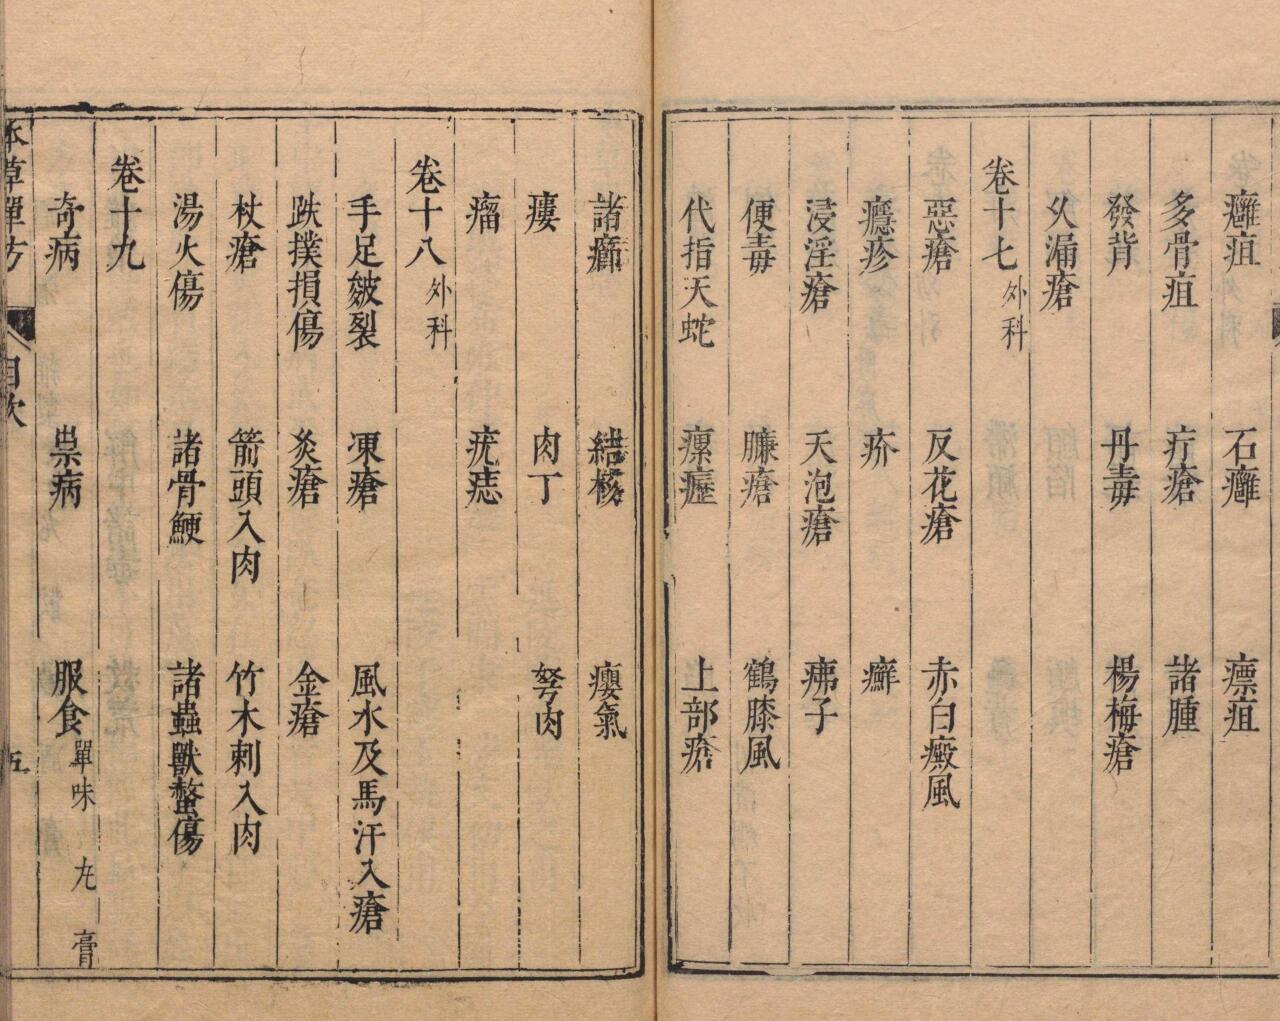 癰疽 石癰 瘭疽
多骨疽 疔瘡 諸腫
發背 丹毒 楊梅瘡
久漏瘡
卷十七 外科
惡瘡 反花瘡 赤白癜風
癮疹 疥 癬
浸淫瘡 天泡瘡 疿子
便毒 臁瘡 鶴膝風
代指天蛇 瘰癧 上部瘡
諸癤 結核 癭氣
瘻 肉丁 努肉
瘤 疣痣
卷十八 外科
手足皴裂 凍瘡 風水及馬汗入瘡
跌撲損傷 灸瘡 金瘡
杖瘡 箭頭入肉 竹木刺入肉
湯火傷 諸骨鯁 諸蟲獸螫傷
卷十九
奇病 祟病 服食 單味 丸 膏
本草單方 目次 五